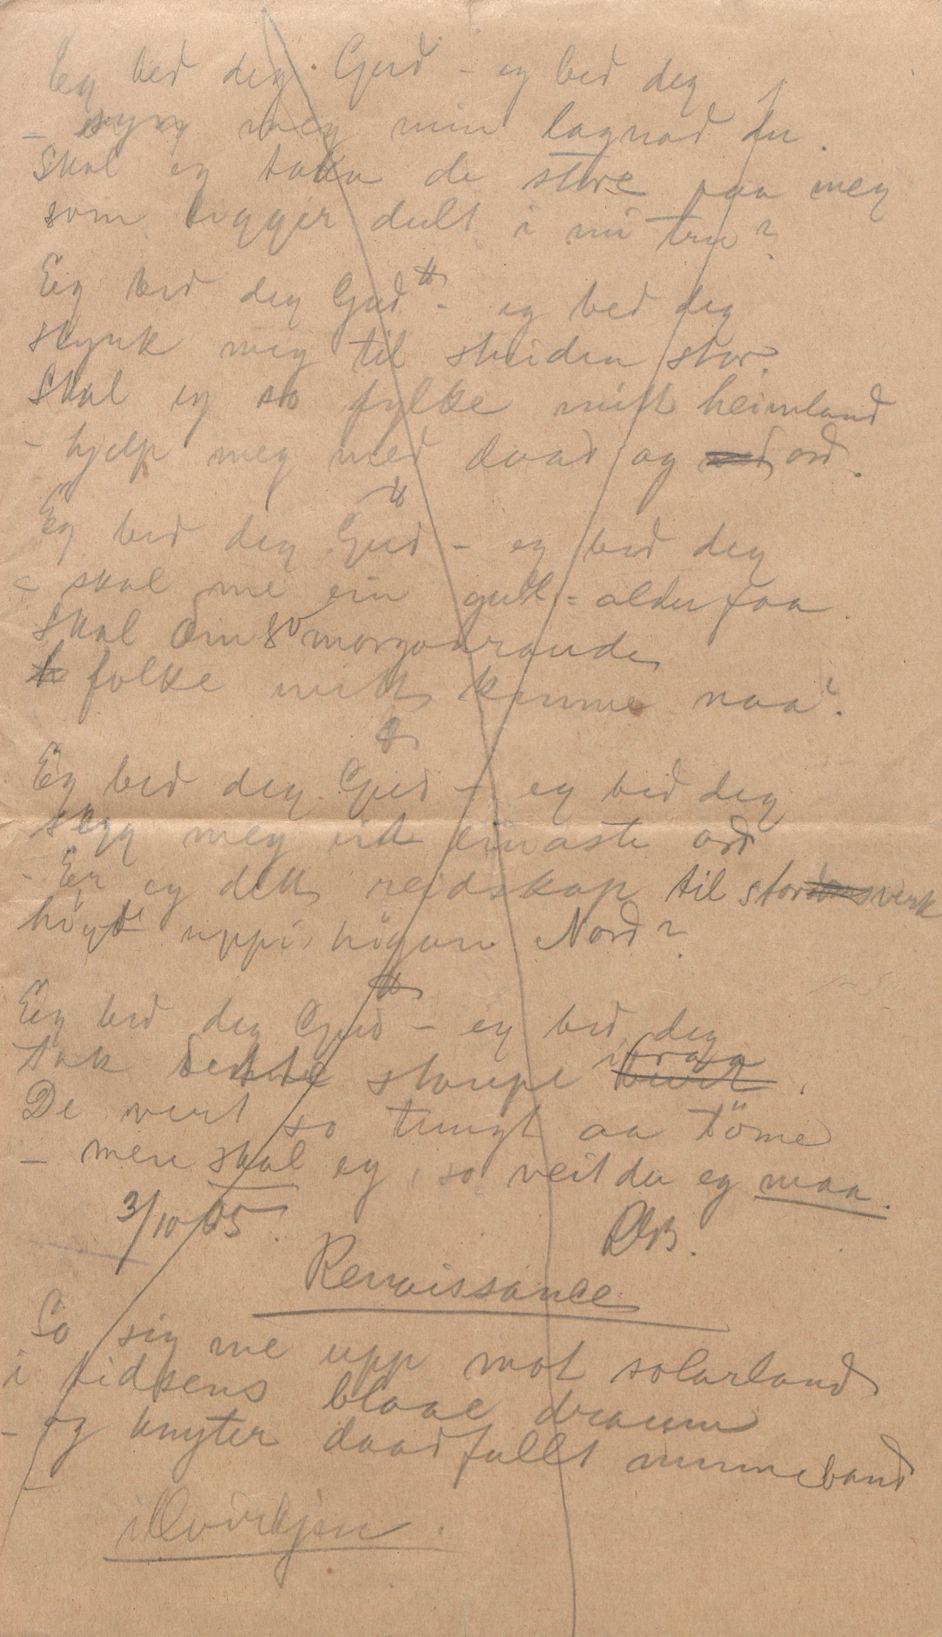 Eg bed deg Gud – eg bed deg
– syn meg min lagnad du.
Skal eg taka de store paa meg
som ligger dult i mi tru?
Eg bed deg Gud – eg bed deg
styrk meg til striden stor.
Skal eg so fylke mitt heimland
– hjelp meg med daad og ord.
Eg bed deg Gud – eg bed deg
– skal me ein gull-alder faa.
Skal morgonrande
folke mitt kunne naa?
Eg bed deg Gud – eg bed deg
segg meg eit einaste ord
– Er eg ditt reidskap til storverk
høgt uppi høgan Nord?
Eg bed deg Gud – eg bed deg
tak denne staupe ifraa.
De vert so tungt aa töme
– men skal eg, so veit du eg maa.
3/10/05.
Renaissance
So sig me upp mot solarland
i tidsens blaae draum
– og knyter daadfullt minneband